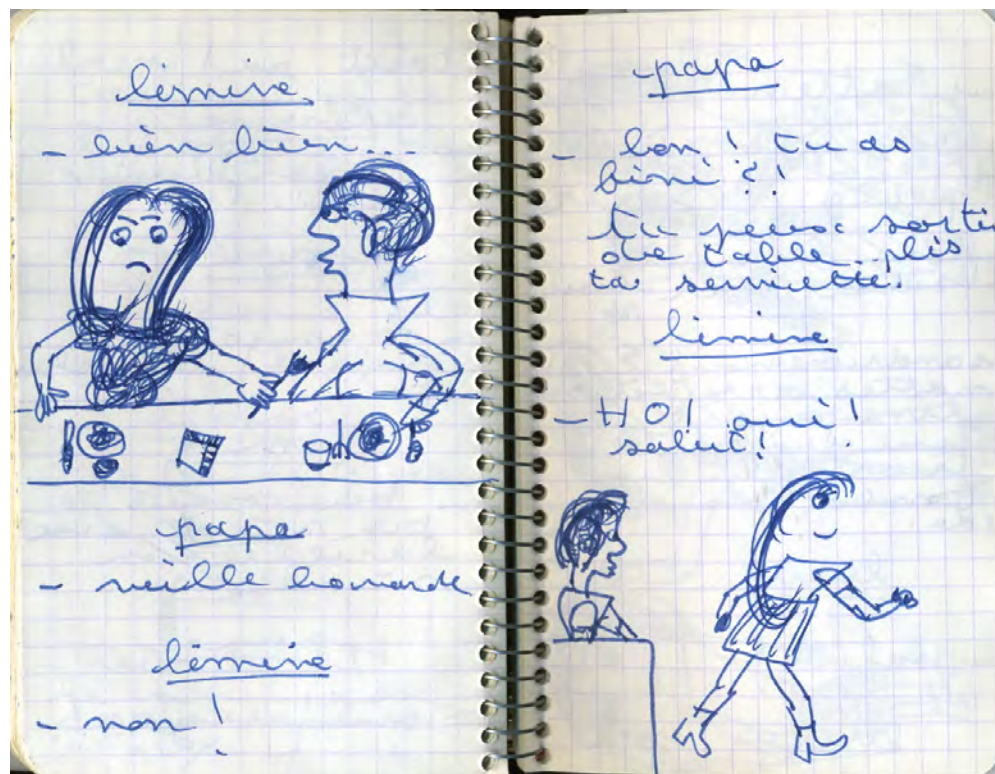 lèmine
- bièn bièn...
papa
- vieille bavarde
lèmine
- non !
papa
- bon ! tu as
fini ?!
tu peux sortir
de table plis
ta serviette.
lèmine
- HO! oui !
salut !